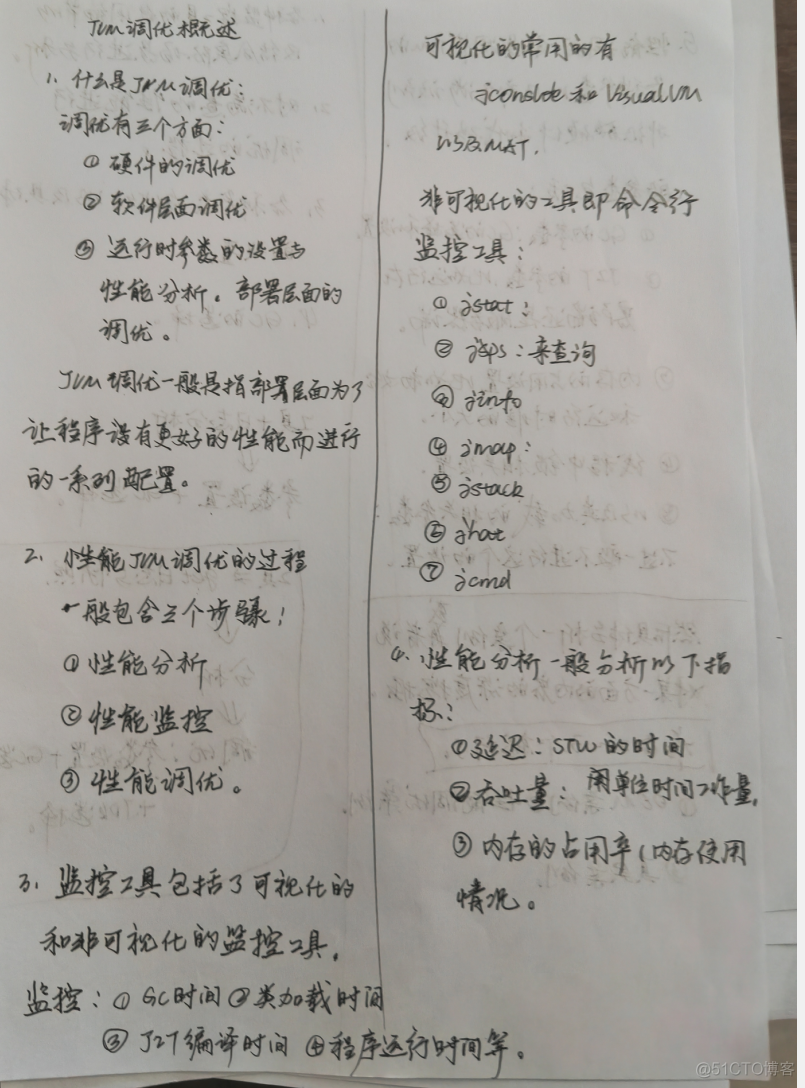 JVM调优概述
1. 什么是JVM调优:
调优有三个方面:
① 硬件的调优
② 软件层面调优
③ 运行时参数的设置与
性能分析。部署层面的
调优。
JVM调优一般是指部署层面为了
让程序设有更好的性能而进行
的一系列配置。
2. 性能JVM调优的过程
一般包含三个步骤:
① 性能分析
② 性能监控
③ 性能调优。
3. 监控工具包括了可视化的
和非可视化的监控工具.
监控: ① GC时间 ② 类加载时间
③ JIT编译时间 ④ 程序运行时间等。
可视化的常用的有
和 VisualVM
以及MAT.
非可视化的工具即命令行
监控工具:
① jstat:
② jps: 来查询
③ jinfo
④ jmap:
⑤ jstack
⑥ jhat
⑦ jcmd
4. 性能分析一般分析以下指
标:
① 延迟: STW的时间
② 吞吐量: 单位时间工作量.
③ 内存的占用率(内存使用
情况。
@51CTO博客